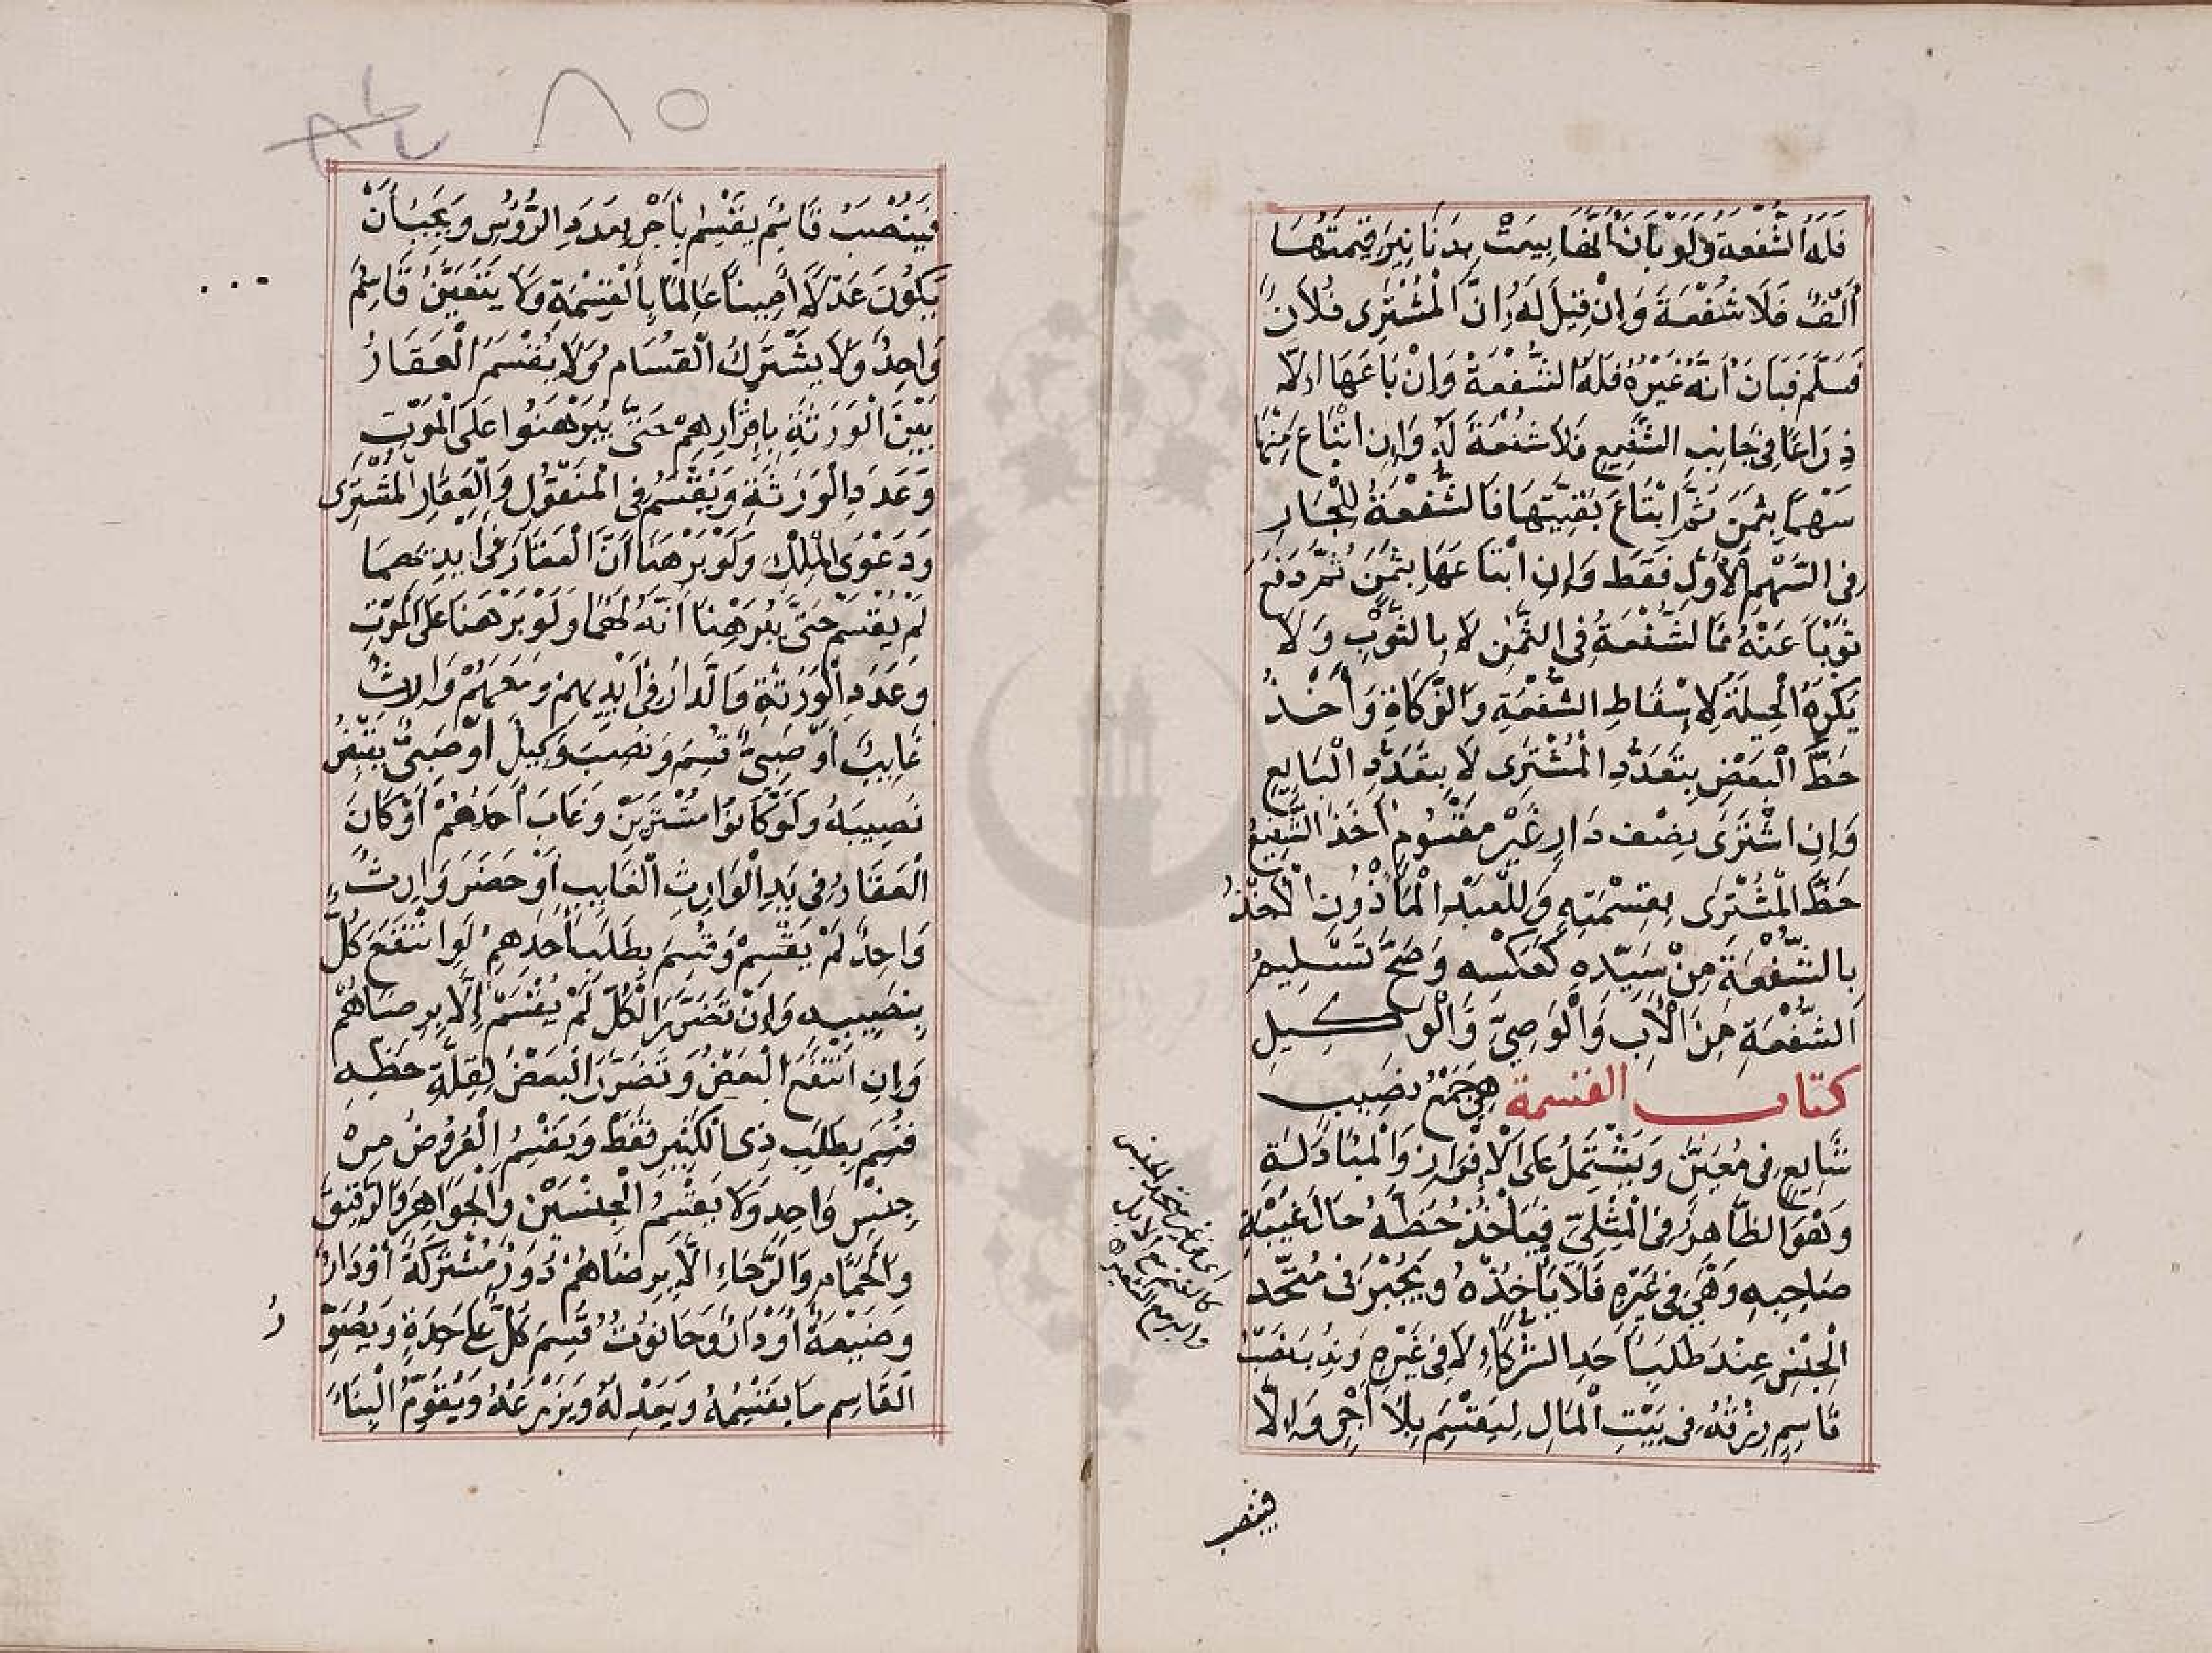 فَلَهُ الشُّفْعَةُ وَلَوْ بَانَ أَنَّهَا بِيعَتْ بِدَنَانِيرَ قِيمَتُهَا
أَلْفٌ فَلَا شُفْعَةَ وَإِنْ قِيلَ لَهُ إِنَّ الْمُشْتَرِى فُلَانٌ
فَسَلَّمَ فَبَانَ أَنَّهُ غَيْرُهُ فَلَهُ الشُّفْعَةُ وَإِنْ بَاعَهَا إِلَّا
ذِرَاعًا فِى جَانِبِ الشَّفِيعِ فَلَا شُفْعَةَ لَهُ وَإِنِ ابْتَاعَ مِنْهَا
سَهْمًا بِثَمَنٍ ثُمَّ ابْتَاعَ بَقِيَّتَهَا فَالشُّفْعَةُ لِلْجَارِ
فِى السَّهْمِ الْأَوَّلِ فَقَطْ وَإِنِ ابْتَاعَهَا بِثَمَنٍ ثُمَّ دَفَعَ
ثَوْبًا عَنْهُ فَالشُّفْعَةُ فِى الثَّمَنِ لَا بِالثَّوْبِ وَلَا
يُكْرَهُ الْحِيلَةُ لِإِسْقَاطِ الشُّفْعَةِ وَالزَّكَاةِ وَأَخْذُ
حَظِّ الْبَعْضِ بِتَعَدُّدِ الْمُشْتَرِى لَا بِتَعَدُّدِ الْبَايِعِ
وَإِنِ اشْتَرَى نِصْفَ دَارٍ غَيْرِ مَقْسُومٍ أَخَذَ الشَّفِيعُ
حَظَّ الْمُشْتَرِى بِقِسْمَتِهِ وَلِلْعَبْدِ الْمَأْذُونِ الْأَخْذُ
بِالشُّفْعَةِ مِنْ سَيِّدِهِ كَعَكْسِهِ وَصَحَّ تَسْلِيمُ
الشُّفْعَةِ مِنَ الْأَبِ وَالْوَصِيِّ وَالْوَكِيلِ
كتاب القسمة هِيَ جَمْعُ نَصِيبٍ
شَايِعٍ فِى مُعَيَّنٍ وَيَشْتَمِلُ عَلَى الْإِفْرَازِ وَالْمُبَادَلَةِ
وَهُوَ الظَّاهِرُ فِى الْمِثْلِيِّ فَيَأْخُذُ حَظَّهُ حَالَ غَيْبَةِ
صَاحِبِهِ وَهِيَ فِى غَيْرِهِ فَلَا يَأْخُذُهُ وَيُجْبَرُ فِى مُتَّحِدِ
الْجِنْسِ عِنْدَ طَلَبِ أَحَدِ الشُّرَكَاءِ لَا فِى غَيْرِهِ وَنُدِبَ نَصْبُ
قَاسِمٍ رِزْقُهُ فِى بَيْتِ الْمَالِ لِيَقْسِمَ بِلَا أَجْرٍ وَإِلَّا
فينصب
كالغنم مع الابل
٨٥
فَيَنْصِبُ قَاسِمٌ يَقْسِمُ بِأَجْرٍ بِعَدَدِ الرُّؤُسِ وَيَجِبُ أَنْ
يَكُونَ عَدْلًا أَمِينًا عَالِمًا بِالْقِسْمَةِ وَلَا يَتَعَيَّنُ قَاسِمٌ
وَاحِدٌ وَلَا يَشْتَرِكُ الْقُسَّامُ وَلَا يُقْسَمُ الْعَقَارُ
بَيْنَ الْوَرَثَةِ بِإِقْرَارِهِمْ حَتَّى يُبَرْهِنُوا عَلَى الْمَوْتِ
وَعَدَدِ الْوَرَثَةِ وَيُقْسَمُ فِى الْمَنْقُولِ وَالْعَقَارِ الْمُشْتَرَى
وَدَعْوَى الْمِلْكِ وَلَوْ بَرْهَنَا أَنَّ الْعَقَارَ فِى أَيْدِيهِمَا
لَمْ يُقْسَمْ حَتَّى يُبَرْهِنَا أَنَّهُ لَهُمَا وَلَوْ بَرْهَنَا عَلَى الْمَوْتِ
وَعَدَدِ الْوَرَثَةِ وَالدَّارُ فِى أَيْدِيهِمْ وَمَعَهُمْ وَارِثٌ
غَايِبٌ أَوْ صَبِيٌّ قُسِمَ وَنُصِبَ وَكِيلٌ أَوْ صَبِيٌّ يَقْبِضُ
نَصِيبَهُ وَلَوْ كَانُوا مُشْتَرِيَنْ وَغَابَ أَحَدُهُمْ أَوْ كَانَ
الْعَقَارُ فِى يَدِ الْوَارِثِ الْغَايِبِ أَوْ حَضَرَ وَارِثٌ
وَاحِدٌ لَمْ يُقْسَمْ وَقُسِمَ بِطَلَبِ أَحَدِهِمْ لَوِ انْتَفَعَ كُلٌّ
بِنَصِيبِهِ وَإِنْ تَضَرَّرَ الْكُلُّ لَمْ يُقْسَمْ إِلَّا بِرِضَاهُمْ
وَإِنِ انْتَفَعَ الْبَعْضُ وَتَضَرَّرَ الْبَعْضُ لِقِلَّةِ حَظِّهِ
قُسِمَ بِطَلَبِ ذِى الْكَثِيرِ فَقَطْ وَيَقْسِمُ الْعُرُوضَ مِنْ
جِنْسٍ وَاحِدٍ وَلَا يَقْسِمُ الْجِنْسَيْنِ وَالْجَوَاهِرَ وَالرَّقِيقَ
وَالْحَمَّامَ وَالرَّحَاءَ إِلَّا بِرِضَاهُمْ دُورٌ مُشْتَرَكَةٌ أَوْ دَارٌ
وَضَيْعَةٌ أَوْ دَارٌ وَحَانُوتٌ قُسِمَ كُلٌّ عَلَى حِدَةٍ وَيُصَوِّرُ
الْقَاسِمُ مَا يَقْسِمُهُ وَيَعْدِلُهُ وَيَزْرَعُهُ وَيُقَوِّمُ الْبِنَاءَ